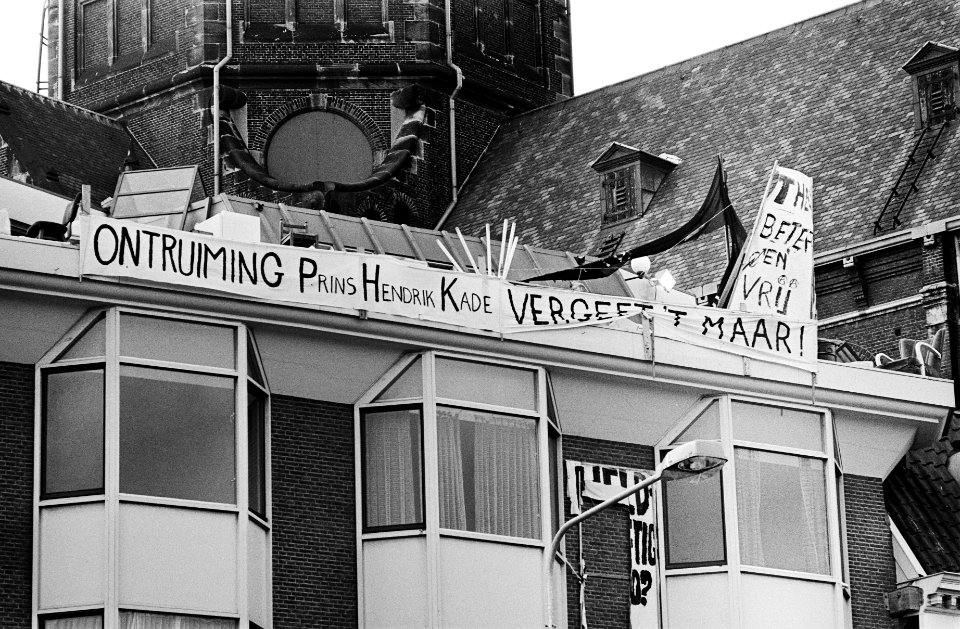 ONTRUIMING PRINS HENDRIK KADE VERGEET 'T MAAR!
BETER
VRIJ